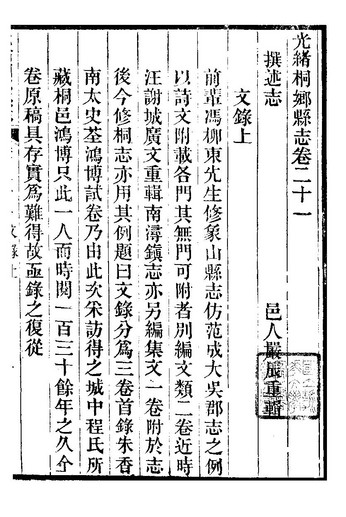 光緒桐鄉縣志卷二十一
撰述志　邑人嚴辰重輯
文錄上
前輩馮柳東先生修象山縣志仿范成大吳郡志之例
以詩文附載各門其無門可附者別編文類二卷近時
汪謝城廣文重輯南潯鎮志亦另編集文一卷附於志
後今修桐志亦用其例題曰文錄分爲三卷首錄朱香
南太史荃鴻博試卷乃由此次采訪得之城中程氏所
藏桐邑鴻博只此一人而時閱一百三十餘年之久今
卷原稿具存實爲難得故亟錄之復從